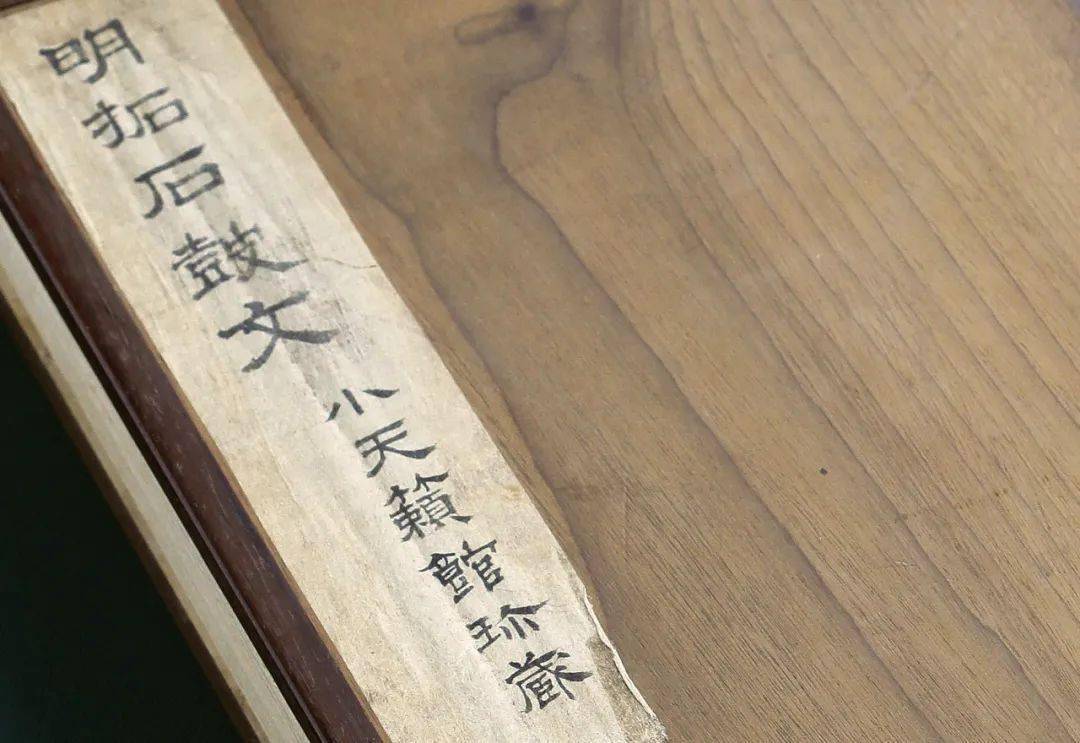 明拓石鼓文 小天籟館珎藏